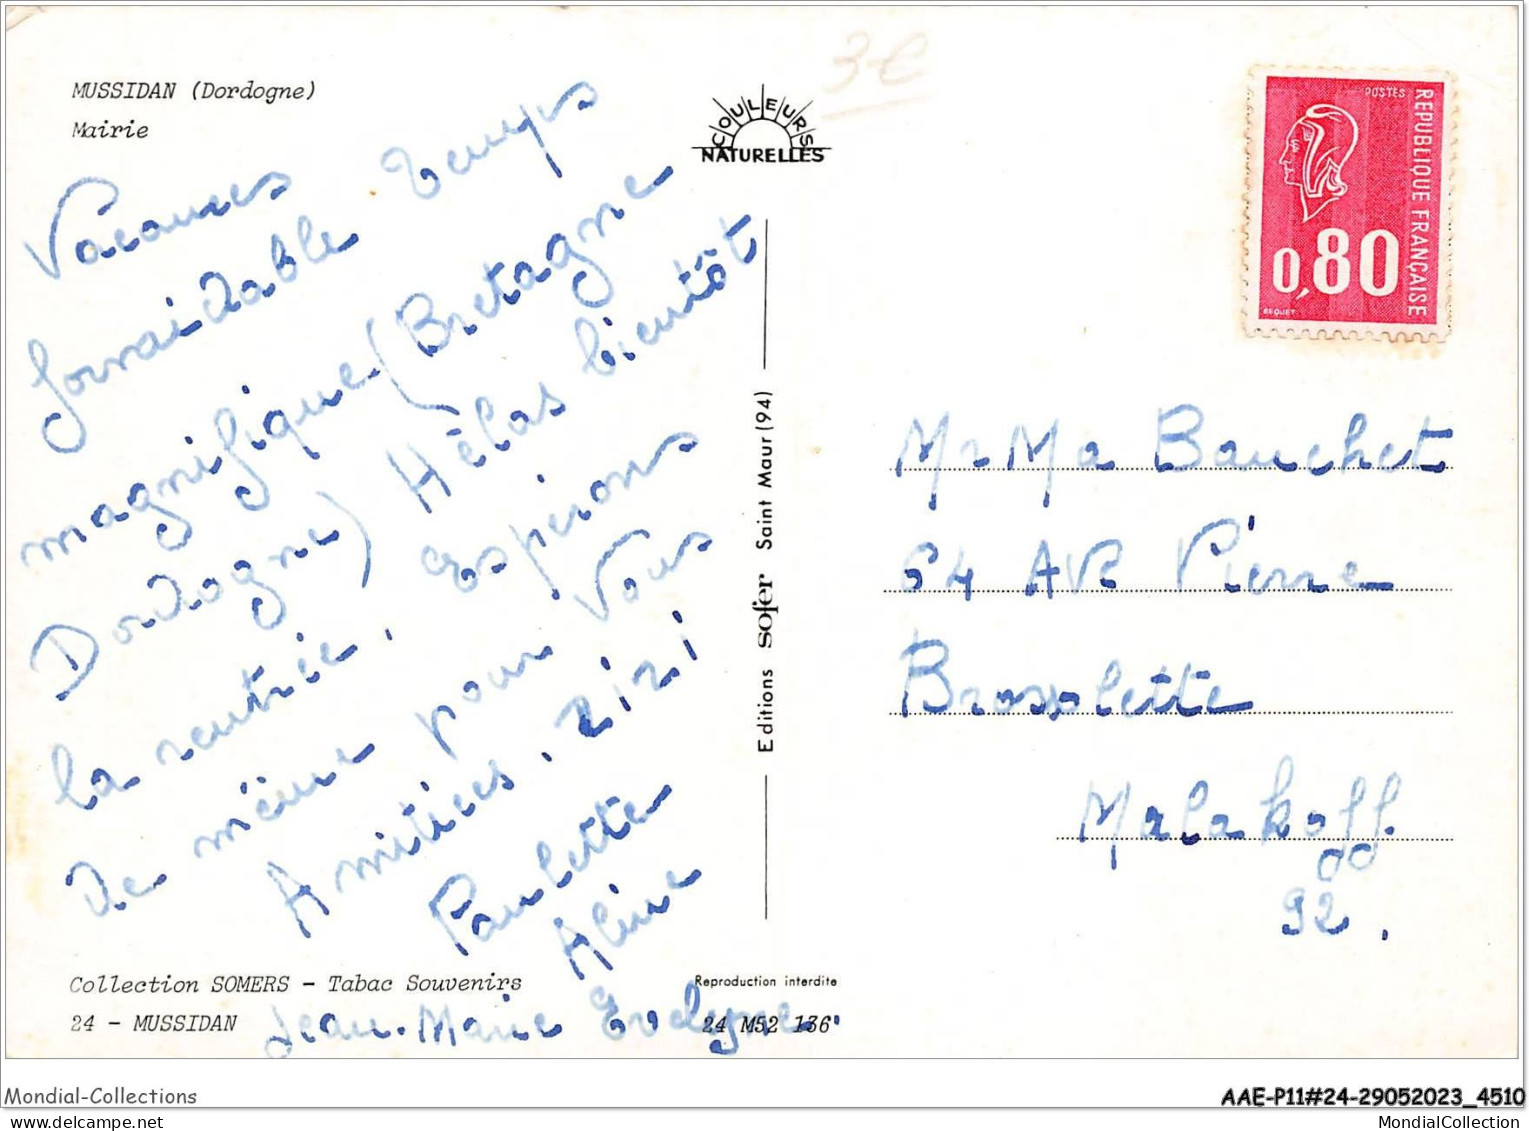 MUSSIDAN (Dordogne)
Mairie
3 €
COULEURS
NATURELLES
POSTES
REPUBLIQUE FRANÇAISE
0,80
BEQUET
Vacances
formidable Temps
magnifique (Bretagne
Dordogne) Hélas bientôt
la rentrée, espérons
de même pour vous
Amitiées. ZiZi
Paulette
Aline
Jean-Marie Evelyne
Editions sofer Saint Maur (94)
Mr Ma Bauchet
64 AVE Pierre
Brossolette
Malakoff
92.
Collection SOMERS - Tabac Souvenirs
24 - MUSSIDAN
Reproduction interdite
24 M52 136
Mondial-Collections
AAE-P11#24-29052023_4510
MondialCollection